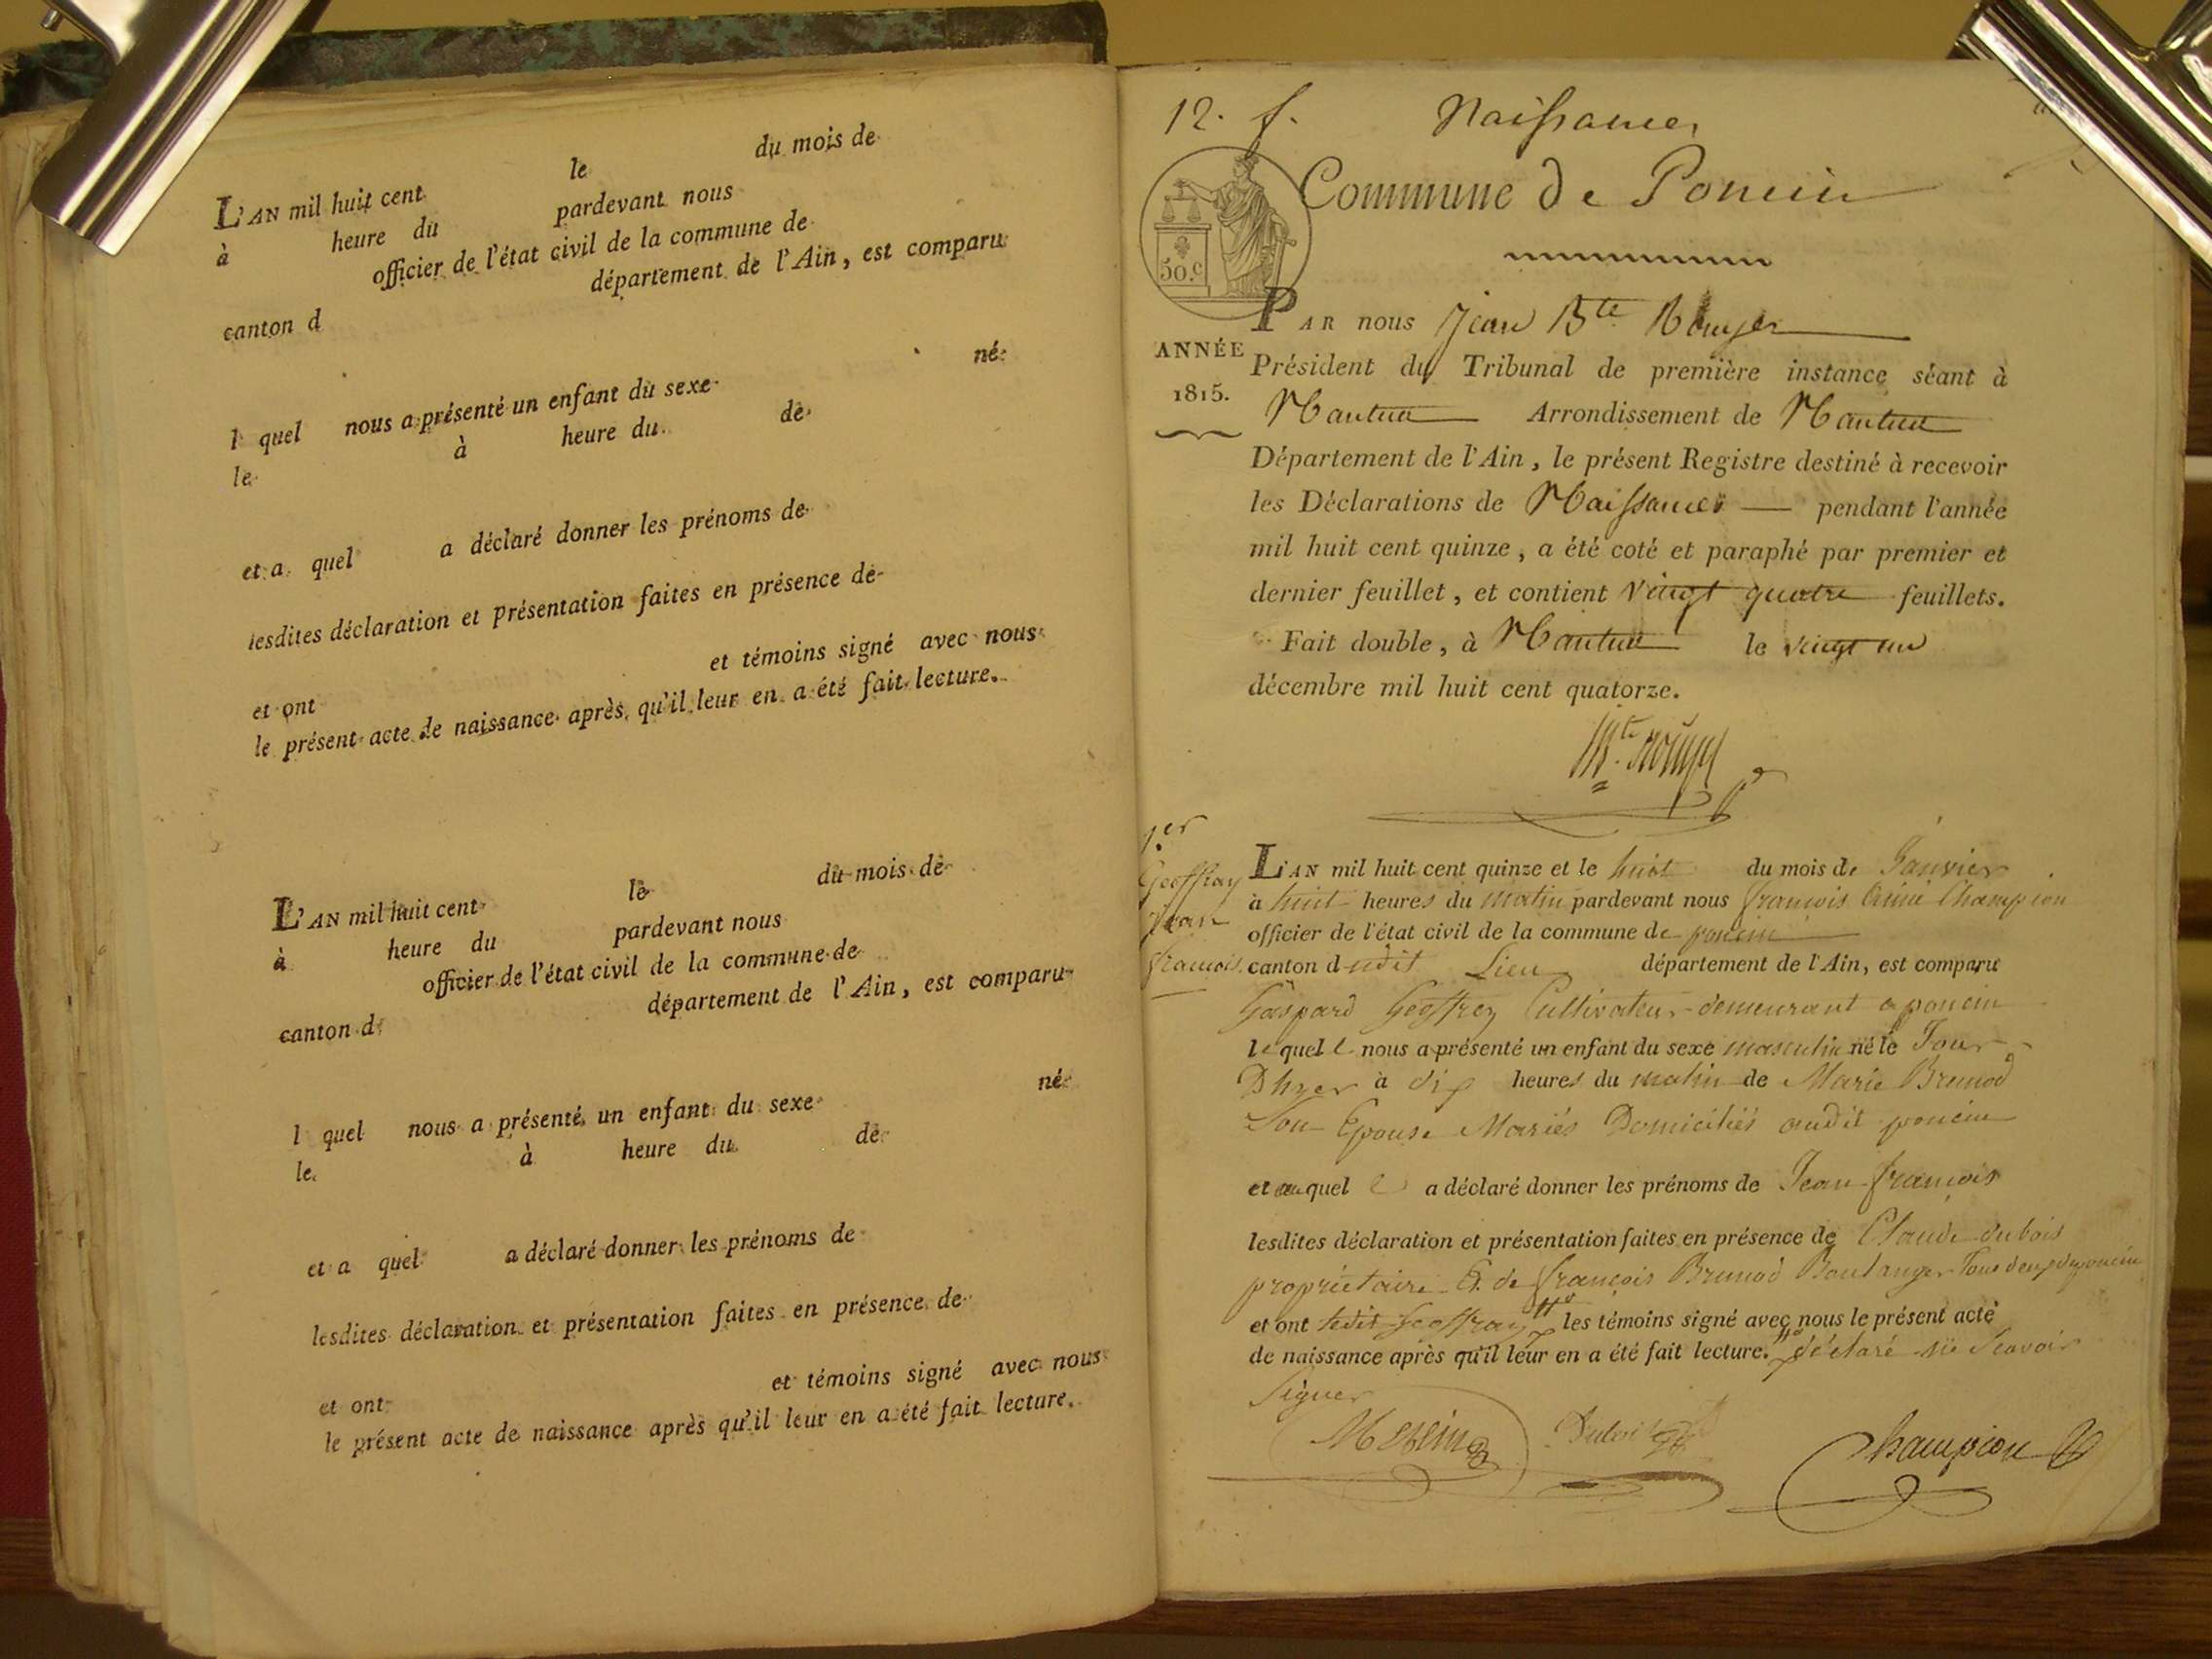 L'AN mil huit cent le du mois de
à heure du pardevant nous
officier de l'état civil de la commune de
canton d département de l'Ain, est comparu
l quel nous a présenté un enfant du sexe né
le à heure du de
et a quel a déclaré donner les prénoms de
lesdites déclaration et présentation faites en présence de
et ont et témoins signé avec nous
le présent acte de naissance après qu'il leur en a été fait lecture.
L'AN mil huit cent le du mois de
à heure du pardevant nous
officier de l'état civil de la commune de
canton d département de l'Ain, est comparu
l quel nous a présenté un enfant du sexe né
le à heure du de
et a quel a déclaré donner les prénoms de
lesdites déclaration et présentation faites en présence de
et ont et témoins signé avec nous
le présent acte de naissance après qu'il leur en a été fait lecture.
12. f. Naissances
Commune de Poncin
50.c
PAR nous Jean Bte
ANNÉE
1815.
Président du Tribunal de première instance séant à
Nantua Arrondissement de Nantua
Département de l'Ain, le présent Registre destiné à recevoir
les Déclarations de Naissances pendant l'année
mil huit cent quinze, a été coté et paraphé par premier et
dernier feuillet, et contient vingt quatre feuillets.
Fait double, à Nantua le vingt un
décembre mil huit cent quatorze.
1.er
Geoffray
Jean
francois
L'AN mil huit cent quinze et le huit du mois de Janvier
à huit heures du matin pardevant nous francois Champion
officier de l'état civil de la commune de poncin
canton dudit Lieu département de l'Ain, est comparu
Gaspard Geoffrey Cultivateur demeurant a poncin
lequel nous a présenté un enfant du sexe masculin né le Jour
Dhyer à dix heures du matin de Marie Brunod
Son Epouse Mariés Domiciliés audit poncin
et auquel a déclaré donner les prénoms de Jean francois
lesdites déclaration et présentation faites en présence de Claude dubois
propriétaire Et de françois Brunod Boulanger Tous deux de poncin
et ont ledit Geoffray les témoins signé avec nous le présent acte
de naissance après qu'il leur en a été fait lecture. déclaré ne Scavoir
Signer
Dubois
Champion